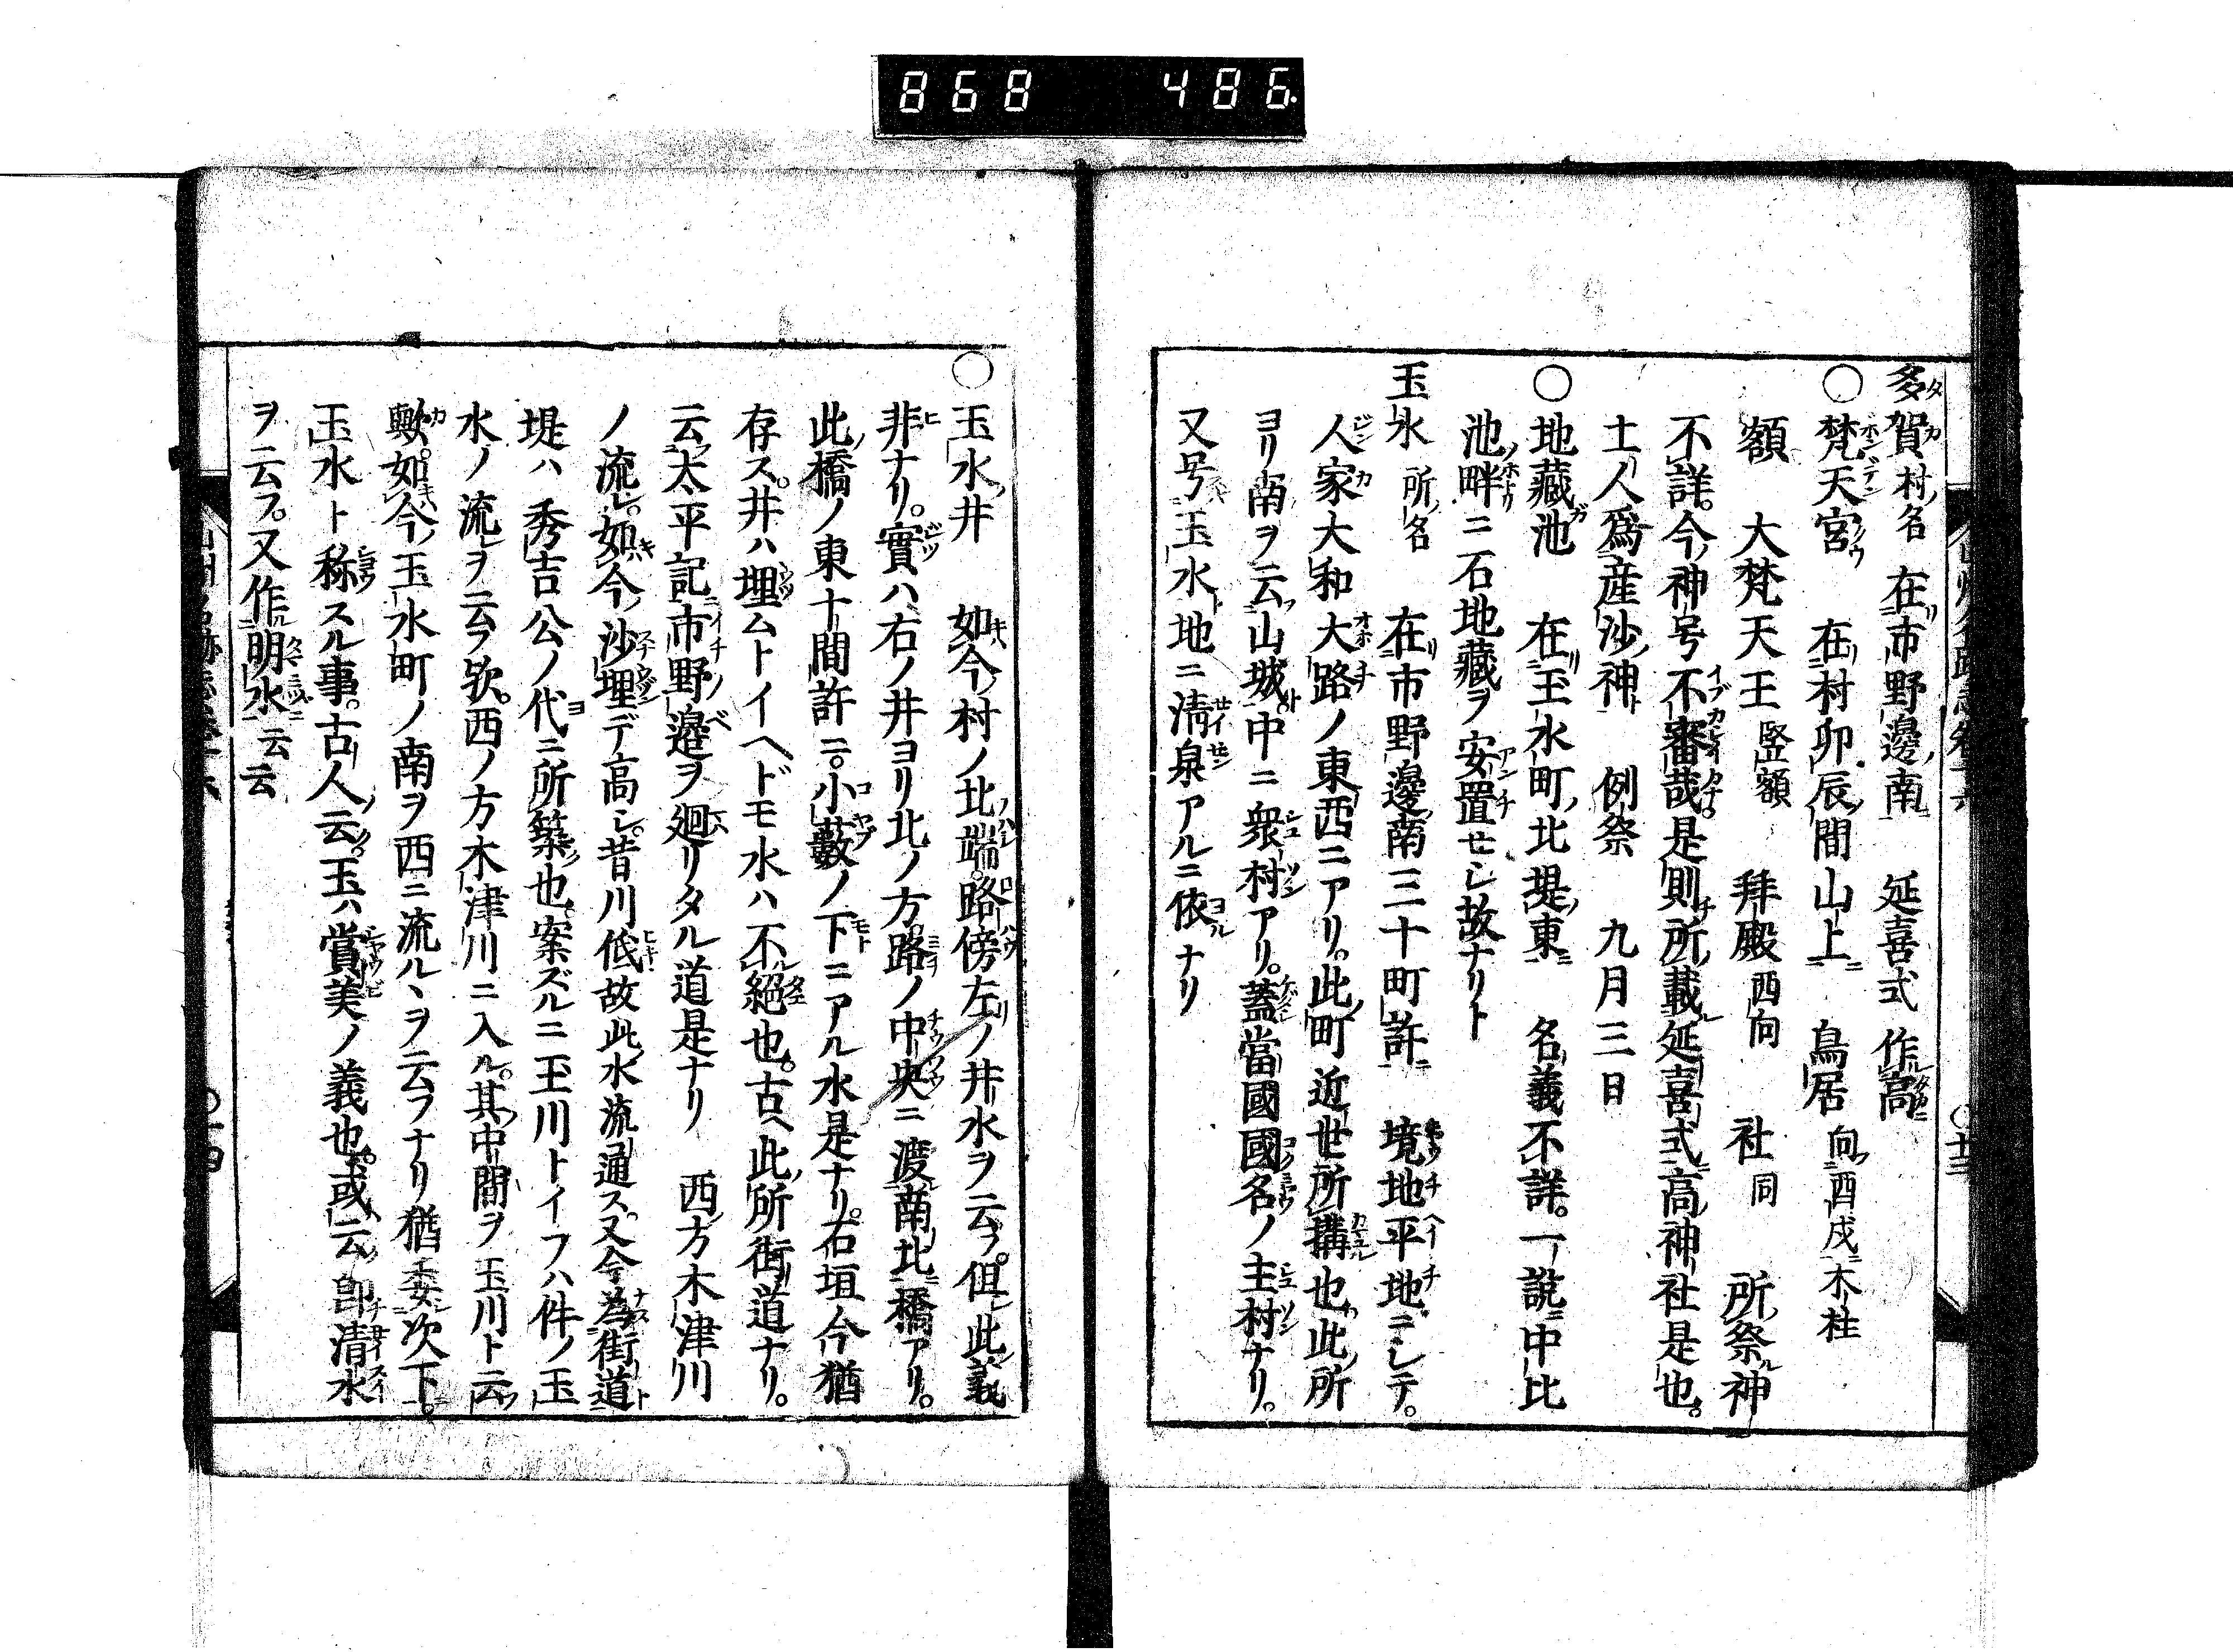 868 486
多賀村名 在市野邊南 延喜式 作高
○梵天宮 在村卯辰間山上 鳥居 向酉戌木柱
額 大梵天王 竪額 拜殿 西向 社 同 所祭神
不詳。今神号不審哉。是則所載延喜式高神社是也。
土人爲産沙神 例祭 九月三日
○地藏池 在玉水町北堤東 名義不詳。一說中比
池畔ニ石地藏ヲ安置セシ故ナリト
玉水 所名 在市野邊南三十町許 境地平地ニシテ。
人家大和大路ノ東西ニアリ。此町近世所搆也此所
ヨリ南ヲ云山城中ニ衆村アリ。蓋當國國名ノ主村ナリ。
又号玉水地ニ淸泉アルニ依ナリ
○玉水井 如今村ノ北端。路傍左ノ井水ヲ云フ。但此義
非ナリ。實ハ右ノ井ヨリ北ノ方路ノ中央ニ渡南北橋アリ。
此橋ノ東十間許ニ。小藪ノ下ニアル水是ナリ。石垣今猶
存ス。井ハ埋ムトイヘドモ水ハ不絕也。古ヘ此所街道ナリ。
云太平記市野邉ヲ廻リタル道是ナリ 西方木津川
ノ流レ。如今沙埋デ高シ。昔川低故此水流通ス。又今為街道
堤ハ秀吉公ノ代ニ所築也。案ズルニ玉川トイフハ件ノ玉
水ノ流レヲ云フ欤。西ノ方木津川ニ入ル。其中間ヲ玉川ト云
歟。如今玉水町ノ南ヲ西ニ流ルヽヲ云フナリ猶委次下。
玉水ト称スル事。古人云。玉ハ賞美ノ義也。或云即清水
ヲ云フ。又作明水云云